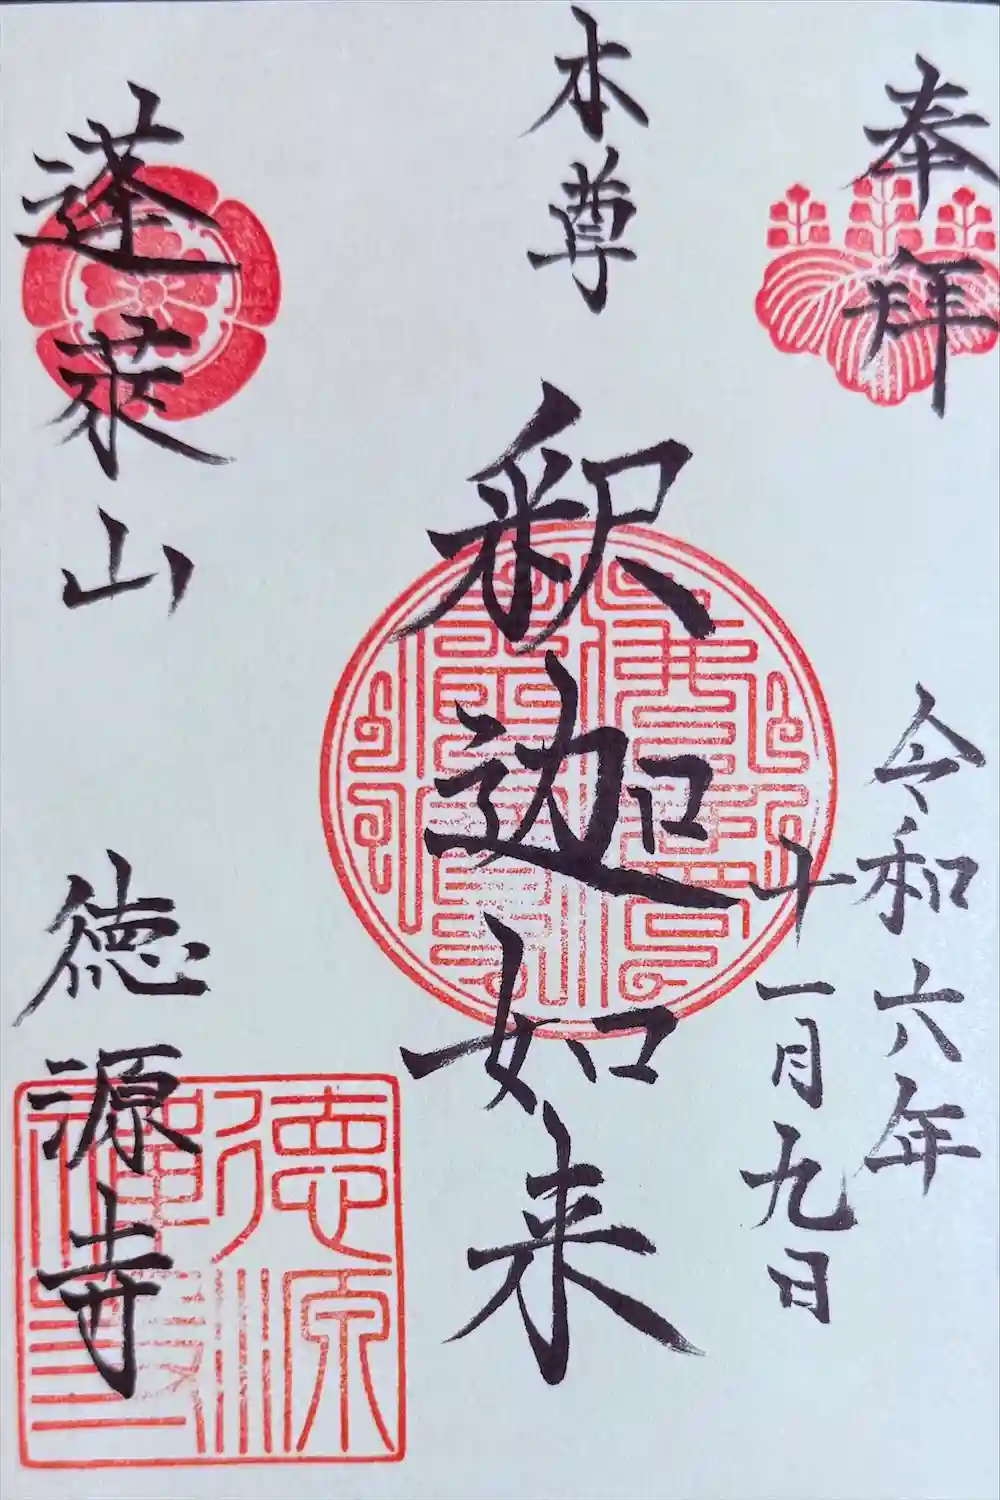 奉拝
令和六年
十一月九日
本尊
釈迦如来
蓬萊山
徳源寺
徳源
禅寺